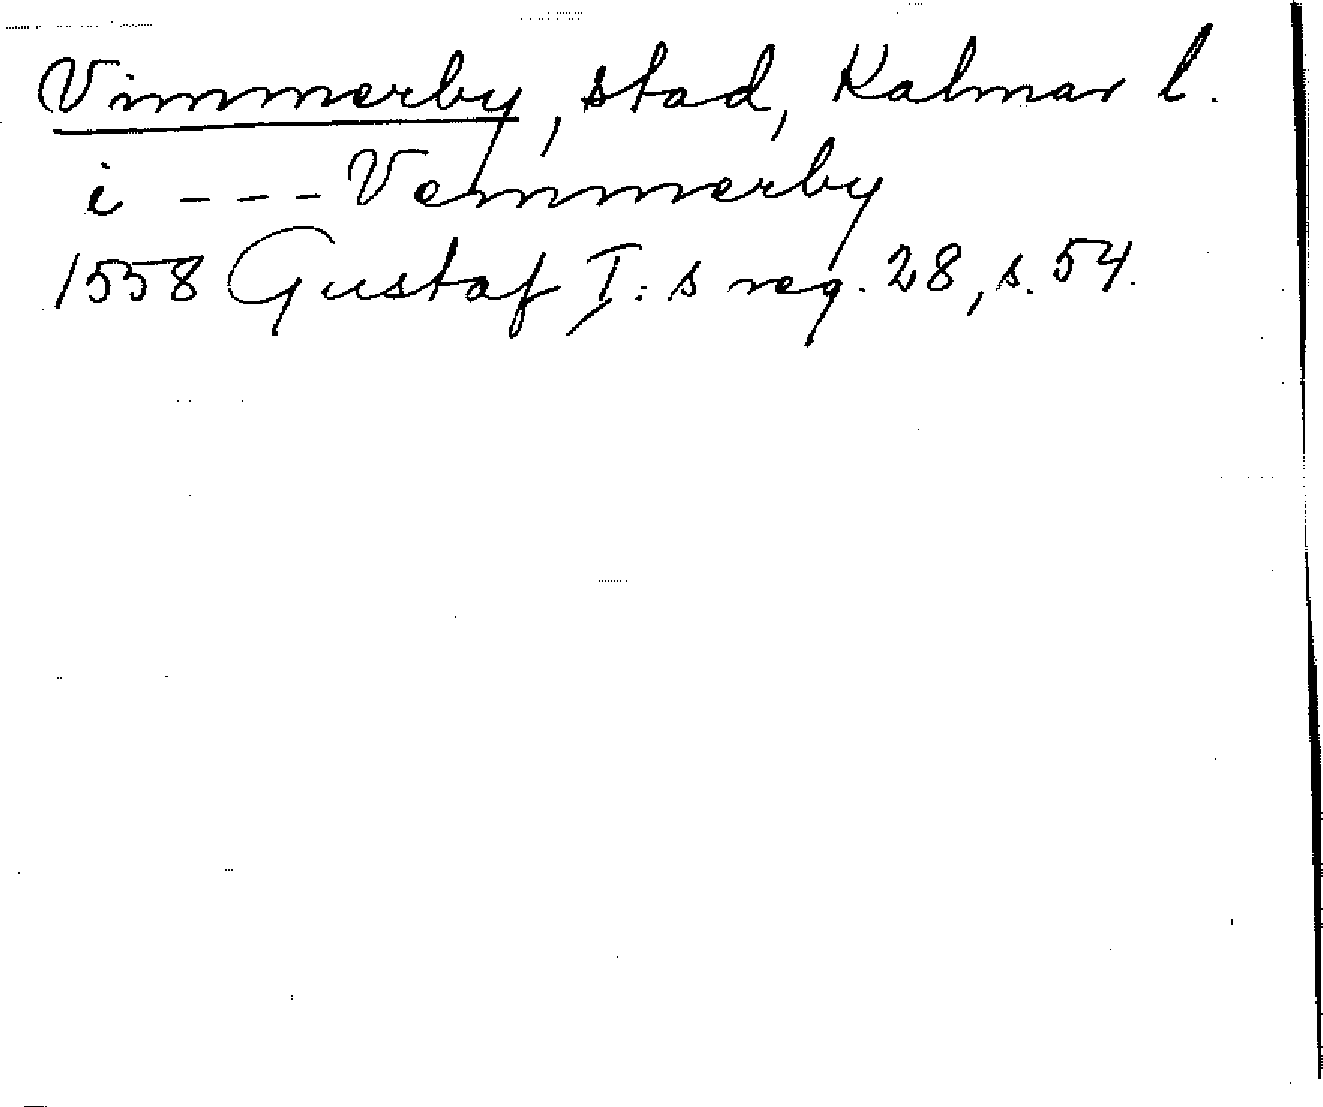 Vimmerby, stad, Kalmar l.
i - - - Vemmerby
1558 Gustaf I:s reg. 28, s. 54.